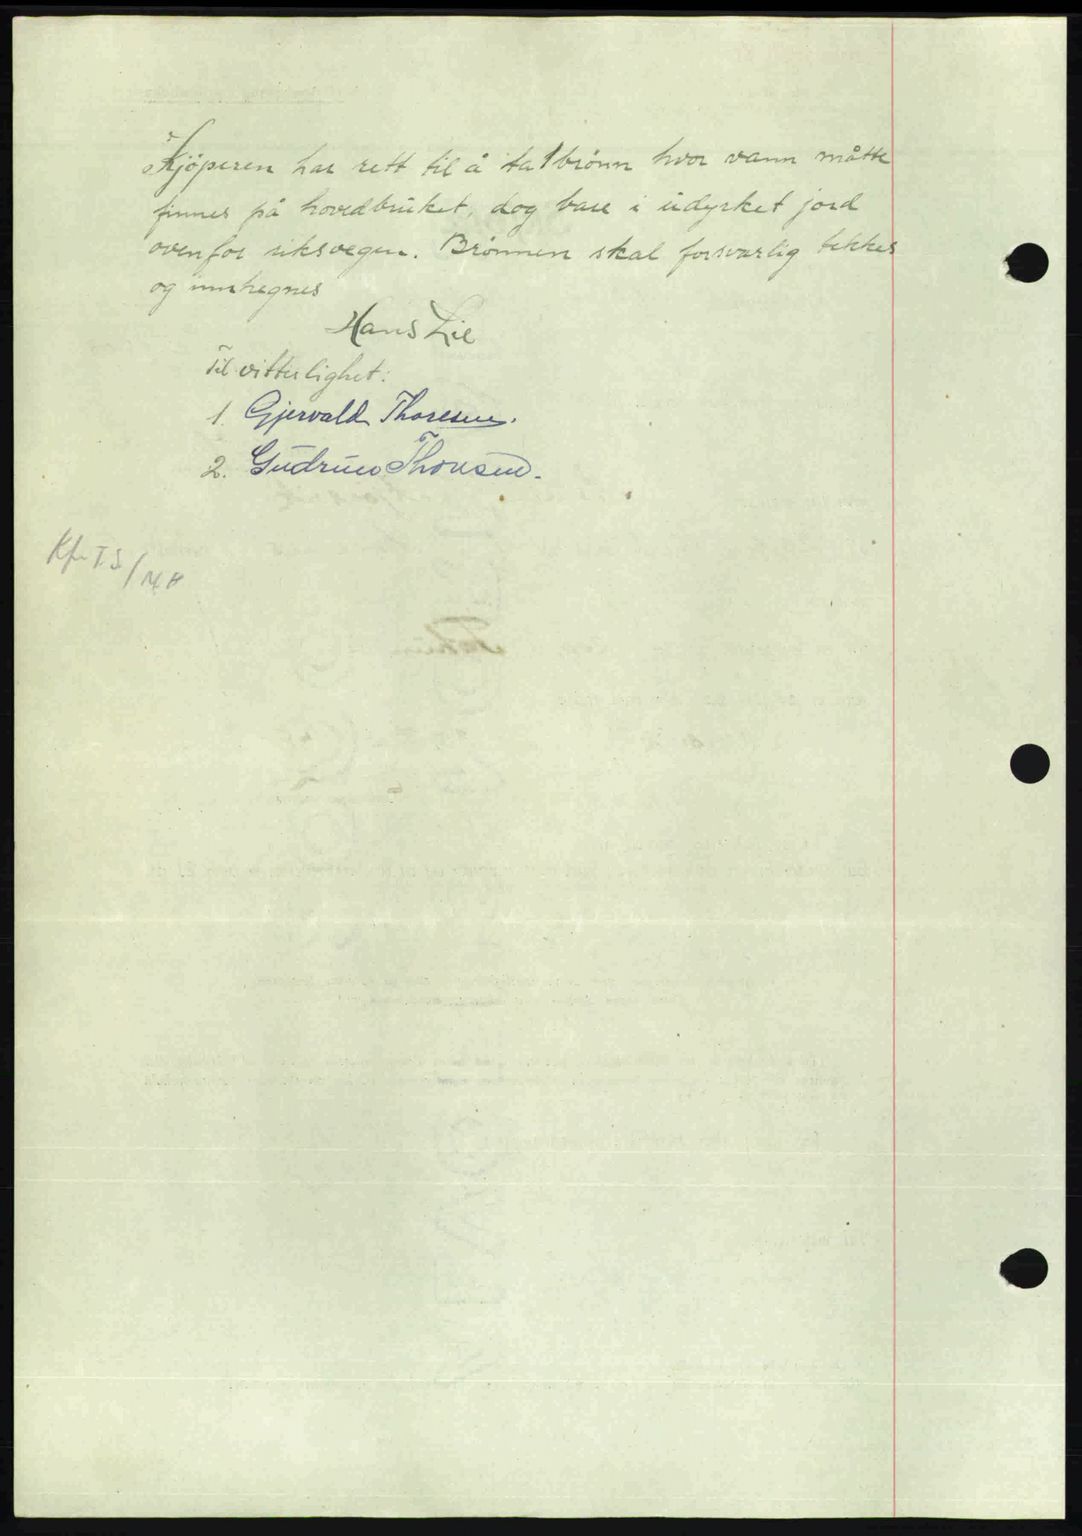 × Kjöperen har rett til å ta 1 brönn hvor vann måtte
finnes på hovedbruket, dog bare i udyrket jord
ovenfor riksvegen. Brönnen skal forsvarlig tekkes
og innhegnes
Hans Lie
Til vitterlighet:
1. Gjervald Thoresen.
2. Gudrun Thoresen.
Kfr